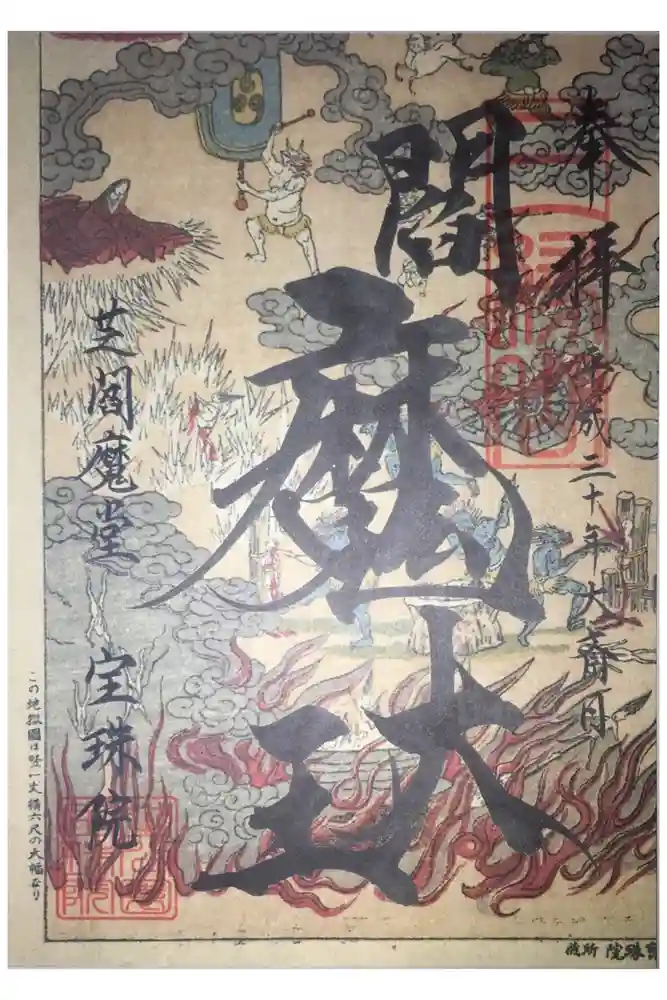 奉拝
平成三十年大斎日
閻魔大王
芝閻魔堂
宝珠院
この地獄圖は竪一丈横六尺の大幅なり
寳珠院所蔵